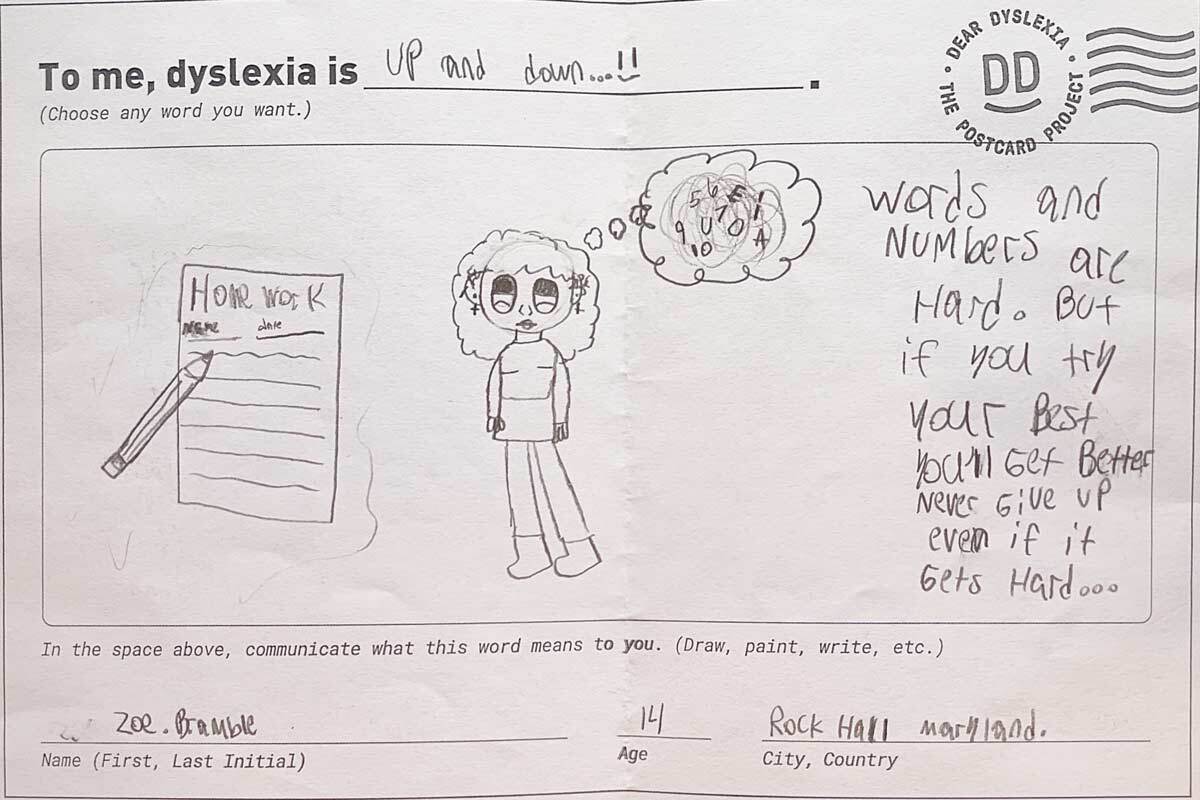 To me, dyslexia is UP and down...!!.
(Choose any word you want.)
• DEAR DYSLEXIA • THE POSTCARD PROJECT
DD
Home work
name date
5 6 E !
9 U 7 O A
10
words and
NUMBers are
Hard. But
if you try
your Best
You'll Get Better
Never Give up
even if it
Gets Hard...
In the space above, communicate what this word means to you. (Draw, paint, write, etc.)
Zoe. Bramble 14 Rock Hall maryland.
Name (First, Last Initial) Age City, Country